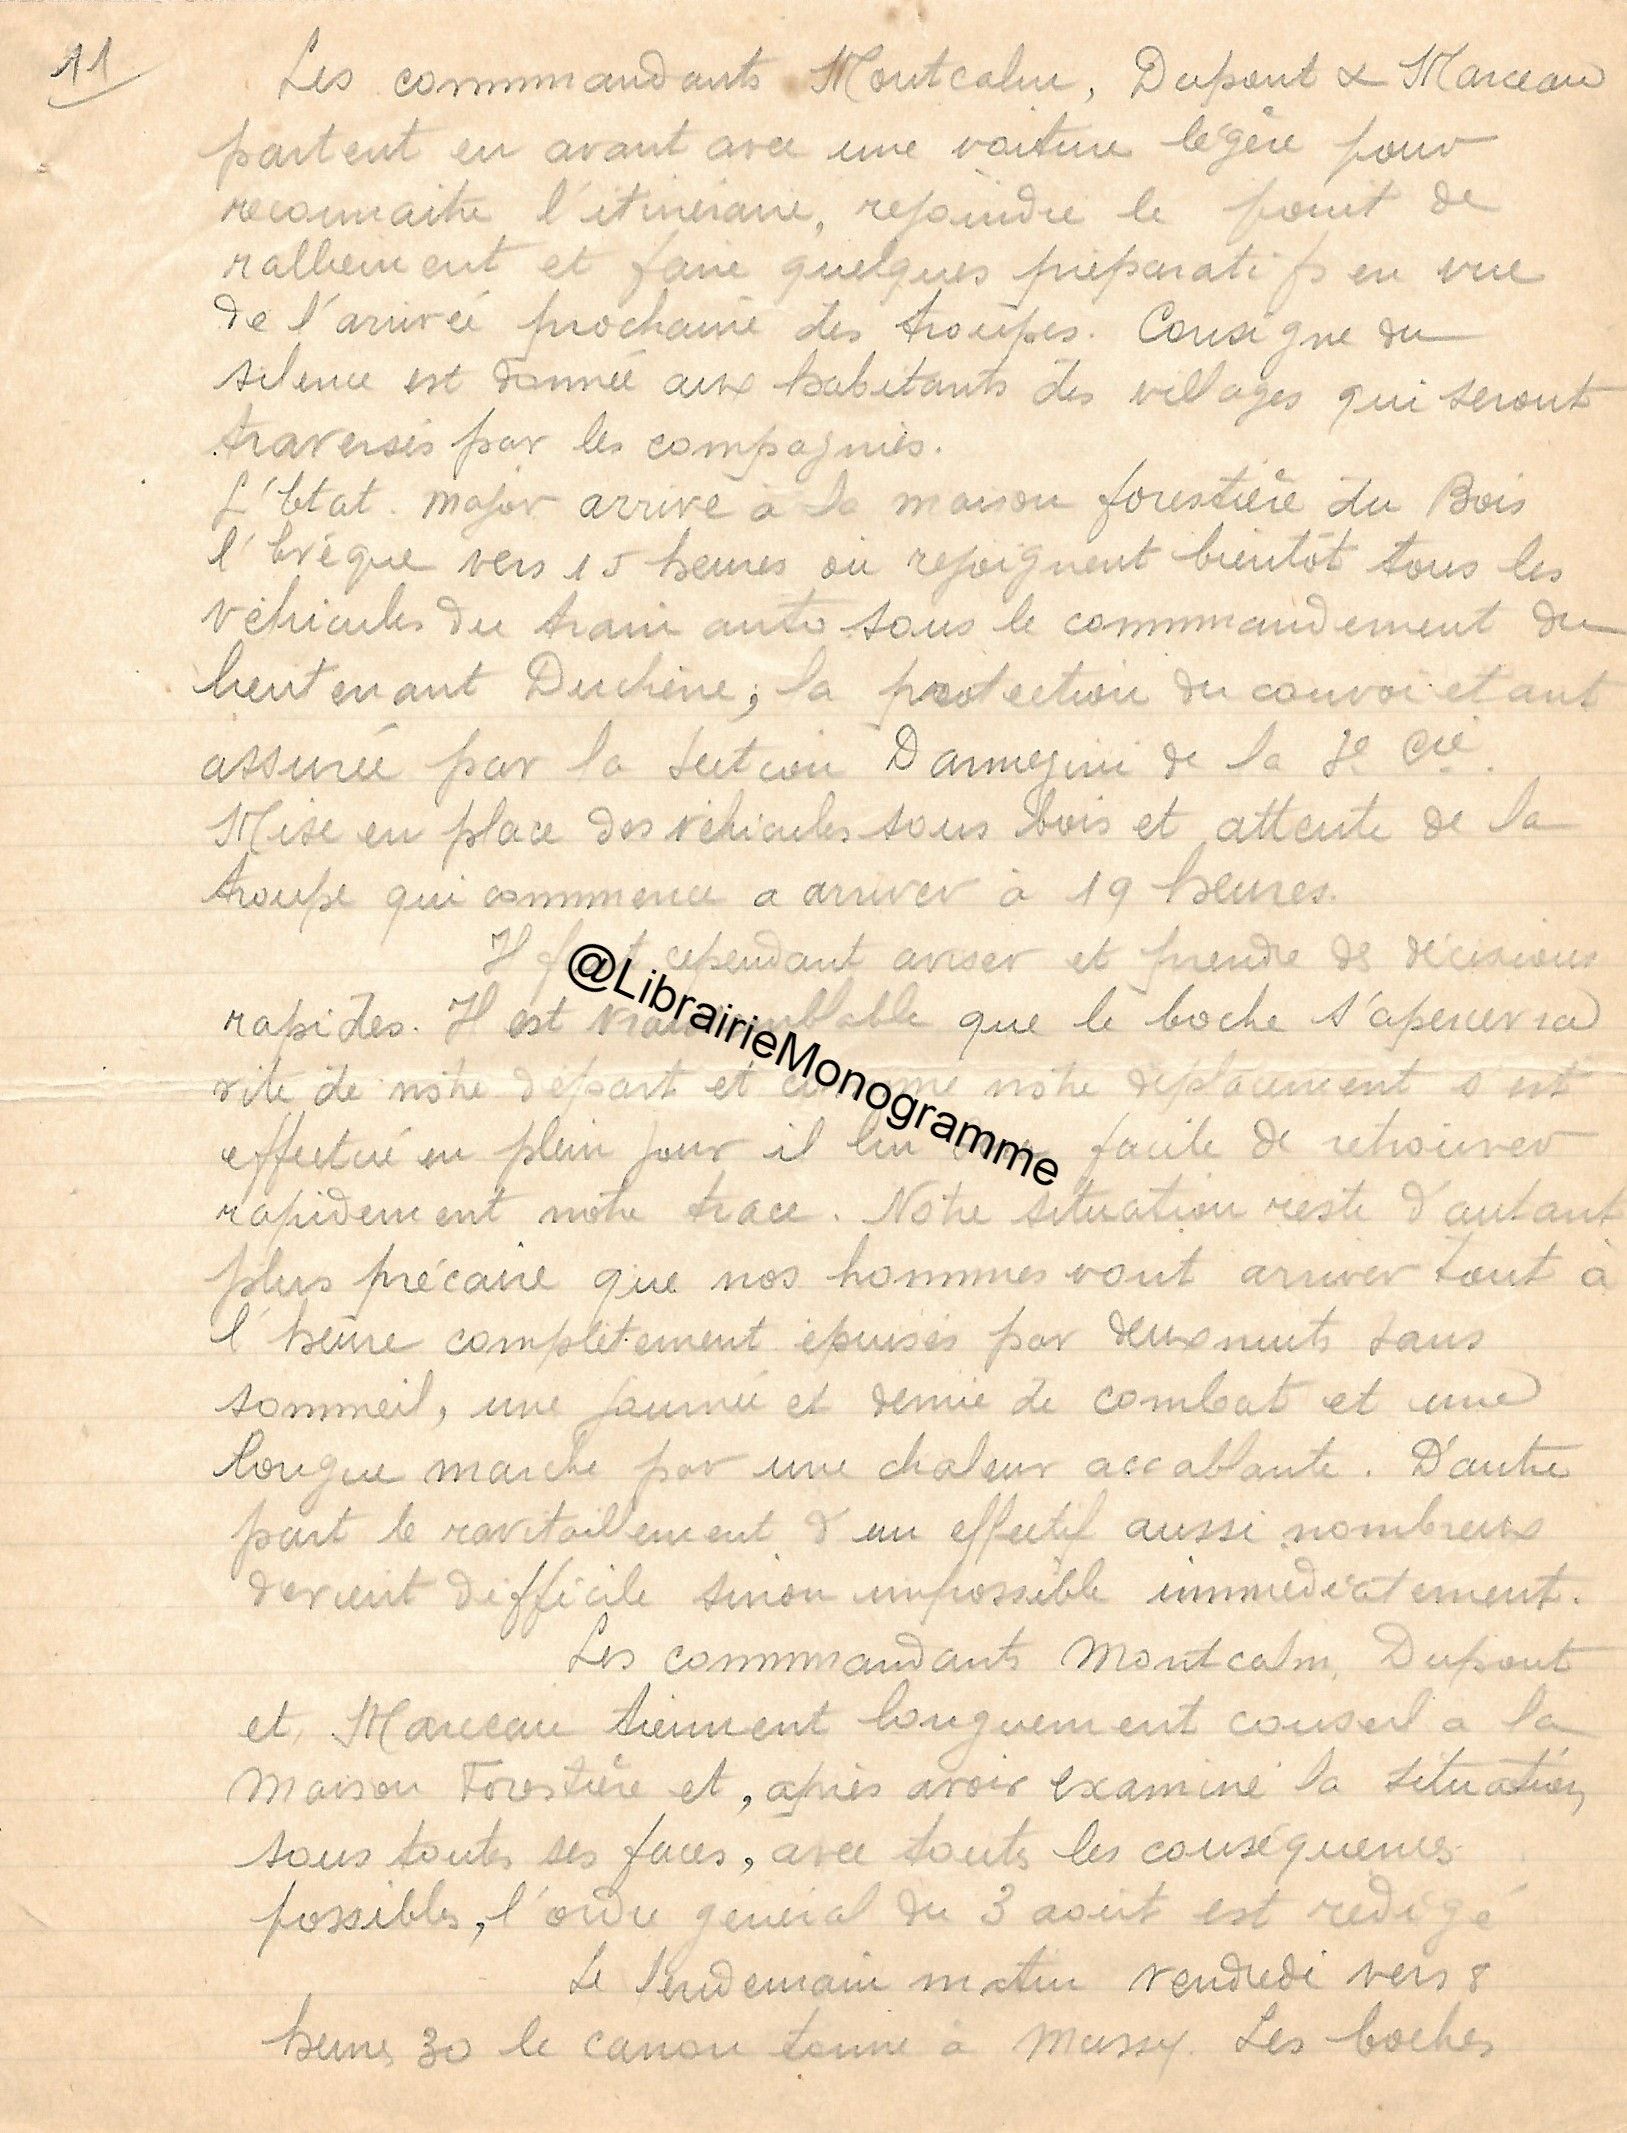 11
Les commandants Montcalm, Dupont & Marceau
partent en avant avec une voiture légère pour
reconnaitre l'itinéraire, rejoindre le point de
ralliement et faire quelques préparatifs en vue
de l'arrivée prochaine des troupes. Consigne du
silence est donnée aux habitants des villages qui seront
traversés par les compagnies.
L'Etat. major arrive à la maison forestière du Bois
l'Evêque vers 15 heures où rejoignent bientôt tous les
véhicules du train auto sous le commandement du
lieutenant Duchène, la protection du convoi étant
assurée par la section Darmegini de la 3e Cie.
Mise en place des véhicules sous bois et attente de la
troupe qui commence a arriver à 19 heures.
Il cependant aviser et prendre des décisions
rapides. Il est que le boche s'apercevra
vite de notre départ et comme notre déplacement s'est
effectué en plein jour il lui facile de retrouver
rapidement notre trace. Notre situation reste d'autant
plus précaire que nos hommes vont arriver tout à
l'heure complètement épuisés par deux nuits sans
sommeil, une journée et demie de combat et une
longue marche par une chaleur accablante. D'autre
part le ravitaillement d'un effectif aussi nombreux
devient difficile sinon impossible immédiatement.
Les commandants Montcalm, Dupont
et Marceau tiennent longuement conseil a la
Maison Forestière et, après avoir examiné la situation,
sous toutes ses faces, avec toutes les conséquences
possibles, l'ordre général du 3 août est rédigé
Le lendemain matin vendredi vers 8
heures 30 le canon tonne à Mussy. Les boches
@LibrairieMonogramme